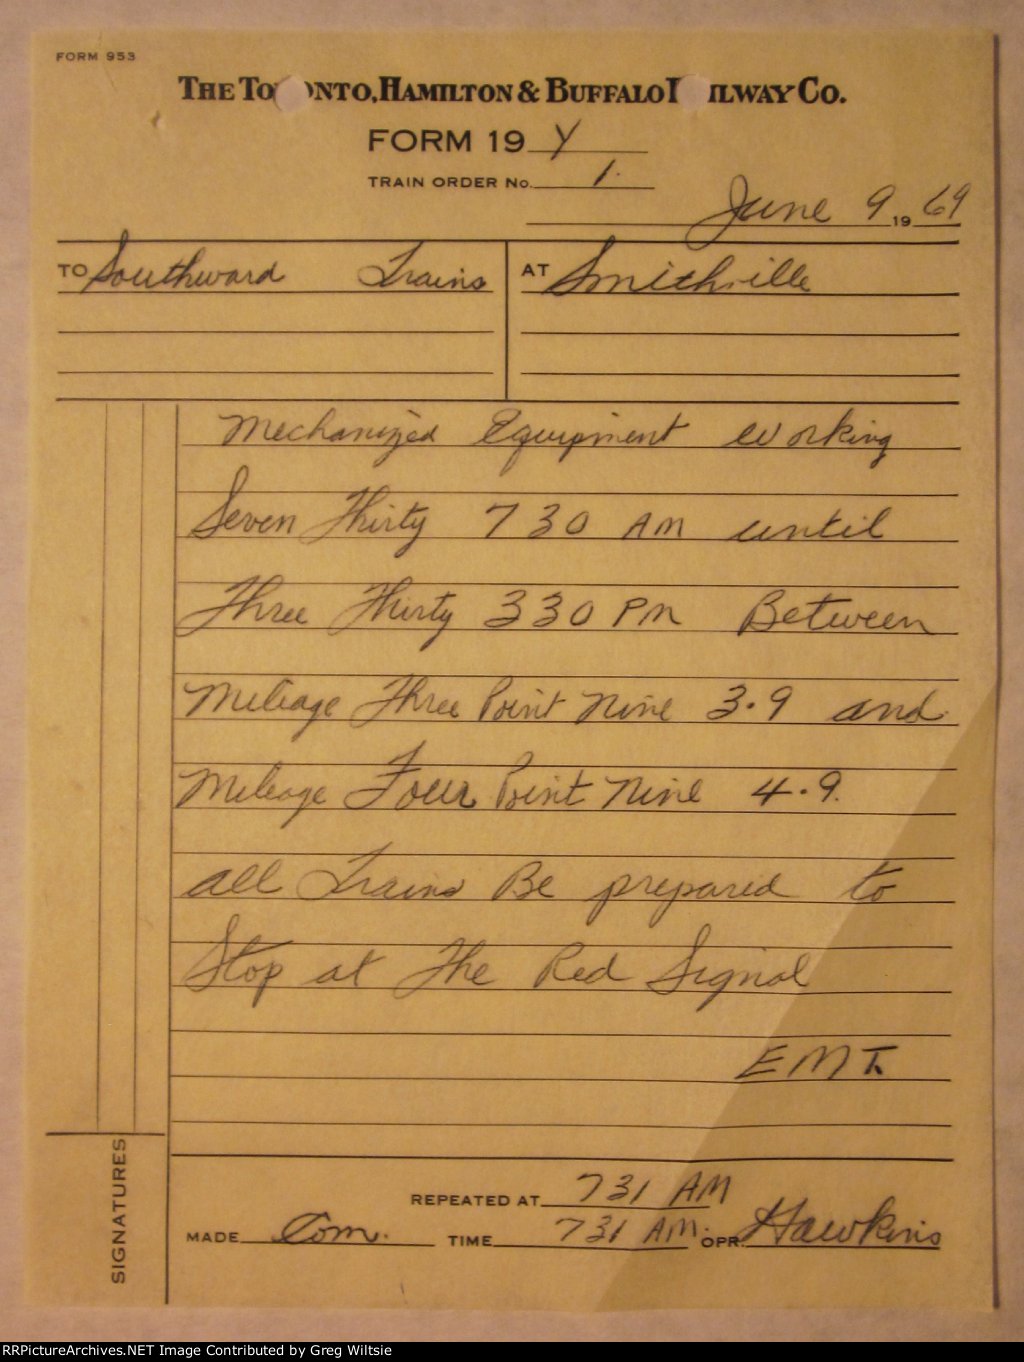 FORM 953
THE TORONTO, HAMILTON & BUFFALO RAILWAY CO.
FORM 19 Y
TRAIN ORDER No. 1.
June 9 19 69
TO Southward Trains
AT Smithville
Mechanized Equipment working
Seven Thirty 730 AM until
Three Thirty 330 PM Between
Mileage Three Point Nine 3.9 and
Mileage Four Point Nine 4.9.
all Trains Be prepared to
Stop at The Red Signal
EMT.
SIGNATURES
REPEATED AT 731 AM
MADE Com. TIME 731 AM. OPR. Hawkins
RRPictureArchives.NET Image Contributed by Greg Wiltsie